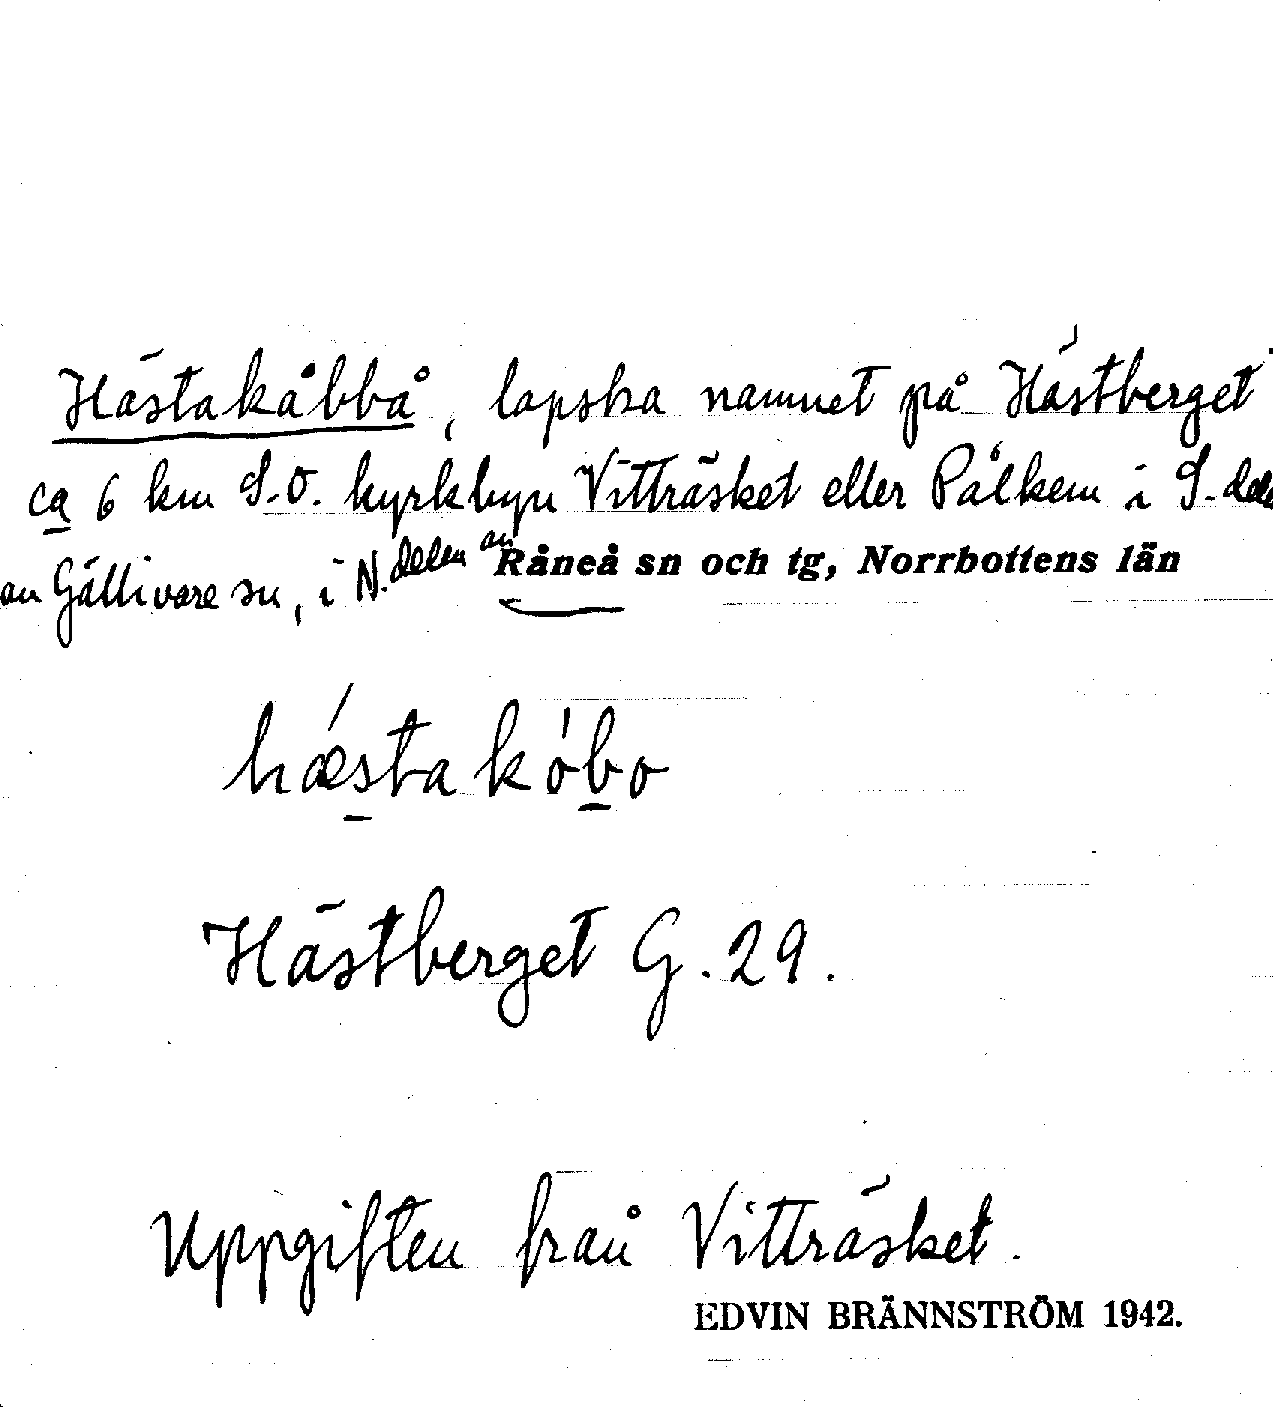 Hästakåbbå, lapska namnet på Hästberget
ca 6 km S.O. kyrkbyn Vitträsket eller Pålkem i S. delen
av Gällivare sn, i N. delen av Råneå sn och tg, Norrbottens län
hæstakóbo
Hästberget G. 29.
Uppgiften från Vitträsket.
EDVIN BRÄNNSTRÖM 1942.